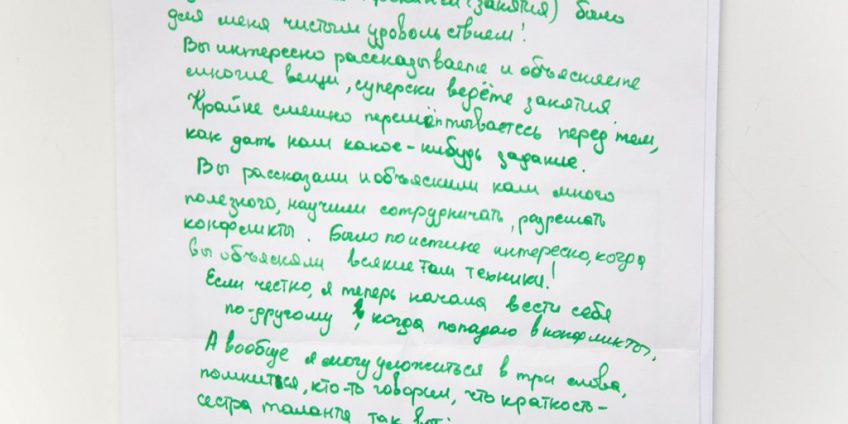 (занятия) было
для меня чистым удовольствием!
Вы интересно рассказываете и объясняете
многие вещи, суперски ведёте занятия.
Крайне смешно перешёптываетесь перед тем,
как дать нам какое-нибудь задание.
Вы рассказали и объяснили нам много
полезного, научили сотрудничать, разрешать
конфликты. Было поистине интересно, когда
вы объясняли всякие там техники!
Если честно, я теперь начала вести себя
по-другому, когда попадаю в конфликты.
А вообще я могу уложиться в три слова,
помнится, кто-то говорил, что краткость-
сестра таланта так вот: